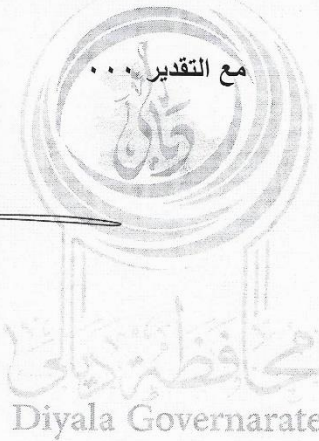 مع التقدير ...
ديالى
محافظة ديالى
Diyala Governarate